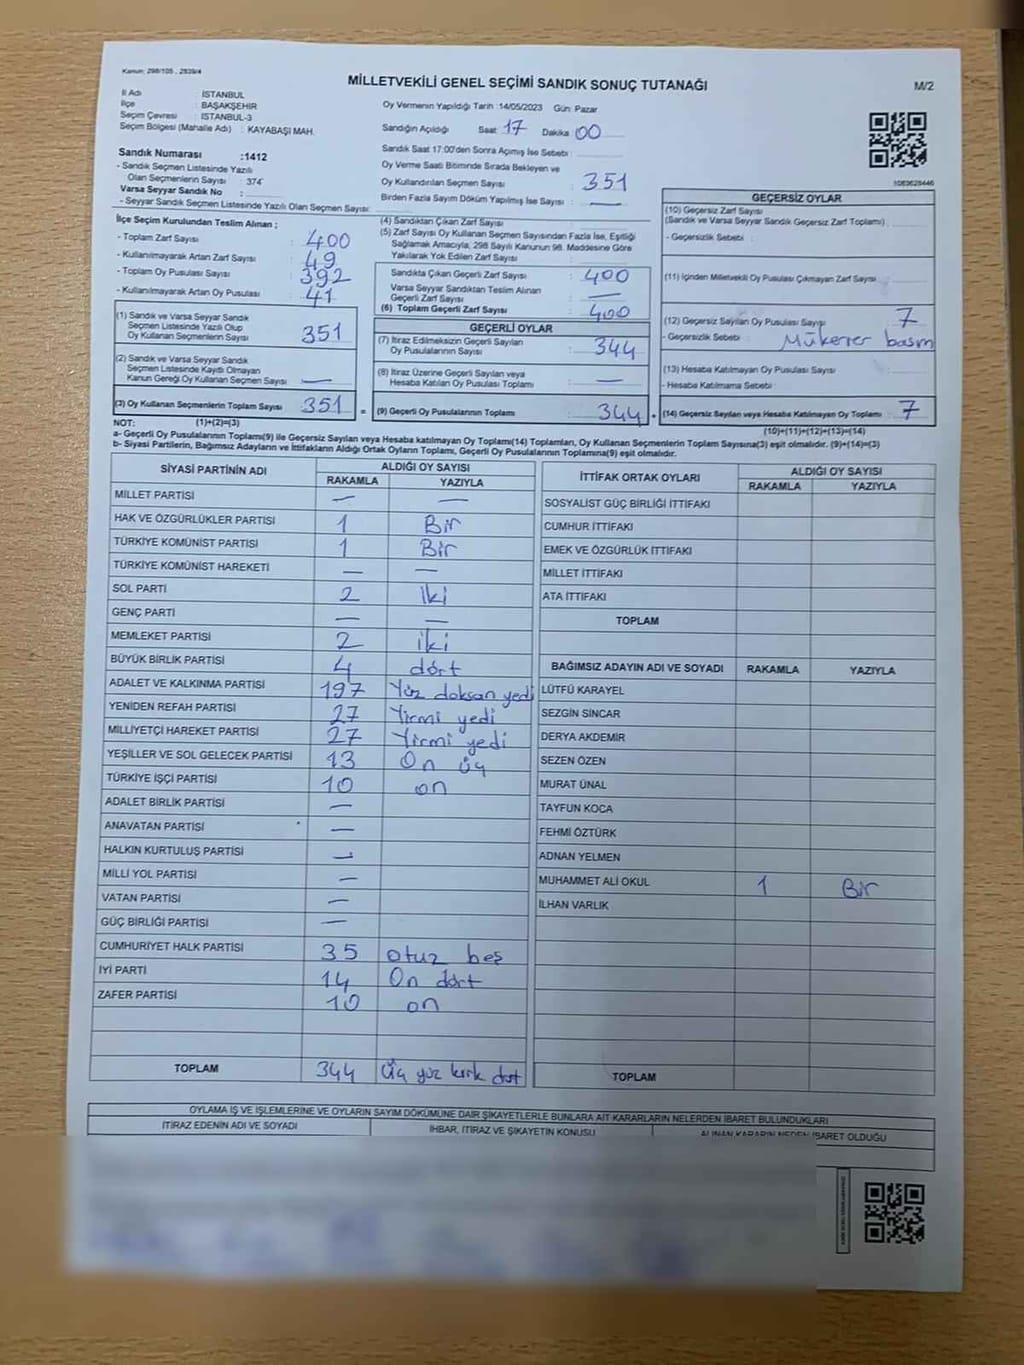 Kanun: 298/105 , 2839/4
MİLLETVEKİLİ GENEL SEÇİMİ SANDIK SONUÇ TUTANAĞI
M/2
İl Adı : İSTANBUL
İlçe : BAŞAKŞEHİR
Seçim Çevresi : İSTANBUL-3
Seçim Bölgesi (Mahalle Adı) : KAYABAŞI MAH.
Sandık Numarası :1412
- Sandık Seçmen Listesinde Yazılı
Olan Seçmenlerin Sayısı : 374
Varsa Seyyar Sandık No :
- Seyyar Sandık Seçmen Listesinde Yazılı Olan Seçmen Sayısı:
Oy Vermenin Yapıldığı Tarih :14/05/2023 Gün: Pazar
Sandığın Açıldığı Saat 17 Dakika 00
Sandık Saat 17:00'den Sonra Açımış İse Sebebi :
Oy Verme Saati Bitiminde Sırada Bekleyen ve
Oy Kullandırılan Seçmen Sayısı : 351
Birden Fazla Sayım Döküm Yapılmış İse Sayısı : —
1083628446
İlçe Seçim Kurulundan Teslim Alınan ;
- Toplam Zarf Sayısı : 400
- Kullanılmayarak Artan Zarf Sayısı : 49
- Toplam Oy Pusulası Sayısı : 392
- Kullanılmayarak Artan Oy Pusulası : 41
(1) Sandık ve Varsa Seyyar Sandık
Seçmen Listesinde Yazılı Olup
Oy Kullanan Seçmen Sayısı : 351
(2) Sandık ve Varsa Seyyar Sandık
Seçmen Listesinde Kayıtlı Olmayan
Kanun Gereği Oy Kullanan Seçmen Sayısı : —
(3) Oy Kullanan Seçmenlerin Toplam Sayısı : 351 =
(4) Sandıktan Çıkan Zarf Sayısı :
(5) Zarf Sayısı Oy Kullanan Seçmen Sayısından Fazla İse, Eşitliği
Sağlamak Amacıyla, 298 Sayılı Kanunun 98. Maddesine Göre
Yakılarak Yok Edilen Zarf Sayısı :
Sandıkta Çıkan Geçerli Zarf Sayısı : 400
Varsa Seyyar Sandıktan Teslim Alınan
Geçerli Zarf Sayısı : —
(6) Toplam Geçerli Zarf Sayısı : 400
GEÇERLİ OYLAR
(7) İtiraz Edilmeksizin Geçerli Sayılan
Oy Pusulalarının Sayısı : 344
(8) İtiraz Üzerine Geçerli Sayılan veya
Hesaba Katılan Oy Pusulası Toplamı : —
(9) Geçerli Oy Pusulalarının Toplamı : 344 +
GEÇERSİZ OYLAR
(10) Geçersiz Zarf Sayısı
(Sandık ve Varsa Seyyar Sandık Geçersiz Zarf Toplamı) :
- Geçersizlik Sebebi :
(11) İçinden Milletvekili Oy Pusulası Çıkmayan Zarf Sayısı :
(12) Geçersiz Sayılan Oy Pusulası Sayısı : 7
- Geçersizlik Sebebi : Mükerrer basım
(13) Hesaba Katılmayan Oy Pusulası Sayısı :
- Hesaba Katılmama Sebebi :
(14) Geçersiz Sayılan veya Hesaba Katılmayan Oy Toplamı : 7
NOT: (1)+(2)=(3)
(10)+(11)+(12)+(13)=(14)
a- Geçerli Oy Pusulalarının Toplamı(9) ile Geçersiz Sayılan veya Hesaba katılmayan Oy Toplamı(14) Toplamları, Oy Kullanan Seçmenlerin Toplam Sayısına(3) eşit olmalıdır. (9)+(14)=(3)
b- Siyasi Partilerin, Bağımsız Adayların ve İttifakların Aldığı Ortak Oyların Toplamı, Geçerli Oy Pusulalarının Toplamına(9) eşit olmalıdır.
SİYASİ PARTİNİN ADI ALDIĞI OY SAYISI
RAKAMLA YAZIYLA
MİLLET PARTİSİ — —
HAK VE ÖZGÜRLÜKLER PARTİSİ 1 Bir
TÜRKİYE KOMÜNİST PARTİSİ 1 Bir
TÜRKİYE KOMÜNİST HAREKETİ — —
SOL PARTİ 2 iki
GENÇ PARTİ — —
MEMLEKET PARTİSİ 2 iki
BÜYÜK BİRLİK PARTİSİ 4 dört
ADALET VE KALKINMA PARTİSİ 197 Yüz doksan yedi
YENİDEN REFAH PARTİSİ 27 Yirmi yedi
MİLLİYETÇİ HAREKET PARTİSİ 27 Yirmi yedi
YEŞİLLER VE SOL GELECEK PARTİSİ 13 On üç
TÜRKİYE İŞÇİ PARTİSİ 10 on
ADALET BİRLİK PARTİSİ —
ANAVATAN PARTİSİ —
HALKIN KURTULUŞ PARTİSİ —
MİLLİ YOL PARTİSİ —
VATAN PARTİSİ —
GÜÇ BİRLİĞİ PARTİSİ —
CUMHURİYET HALK PARTİSİ 35 otuz beş
İYİ PARTİ 14 On dört
ZAFER PARTİSİ 10 on
TOPLAM 344 Üç yüz kırk dört
İTTİFAK ORTAK OYLARI ALDIĞI OY SAYISI
RAKAMLA YAZIYLA
SOSYALİST GÜÇ BİRLİĞİ İTTİFAKI
CUMHUR İTTİFAKI
EMEK VE ÖZGÜRLÜK İTTİFAKI
MİLLET İTTİFAKI
ATA İTTİFAKI
TOPLAM
BAĞIMSIZ ADAYIN ADI VE SOYADI RAKAMLA YAZIYLA
LÜTFÜ KARAYEL
SEZGİN SİNCAR
DERYA AKDEMİR
SEZEN ÖZEN
MURAT ÜNAL
TAYFUN KOCA
FEHMİ ÖZTÜRK
ADNAN YELMEN
MUHAMMET ALİ OKUL 1 Bir
İLHAN VARLIK
TOPLAM
OYLAMA İŞ VE İŞLEMLERİNE VE OYLARIN SAYIM DÖKÜMÜNE DAİR ŞİKAYETLERLE BUNLARA AİT KARARLARIN NELERDEN İBARET BULUNDUKLARI
İTİRAZ EDENİN ADI VE SOYADI İHBAR, İTİRAZ VE ŞİKAYETİN KONUSU ALINAN KARARIN NEDEN İBARET OLDUĞU